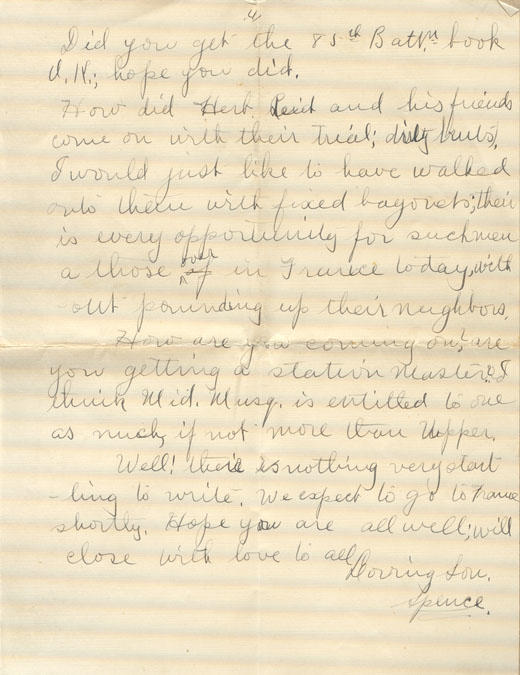 4
Did you get the 85th Battn. book
O.K.; hope you did.
How did Herb Reid and his friends
come on with their trial; dirty bruts,
I would just like to have walked
onto them with fixed bagonets; their
is every opportunity for suchmen
a those over in France today, with
-out pounding up their neighbors.
How are you coming on; are
you getting a station master? I
think Mid. Musq. is entitled to one
as much, if not more than Upper.
Well! there is nothing very start
-ling to write. We expect to go to France
shortly. Hope you are all well; will
close with love to all,
Loving Son.
Spence.